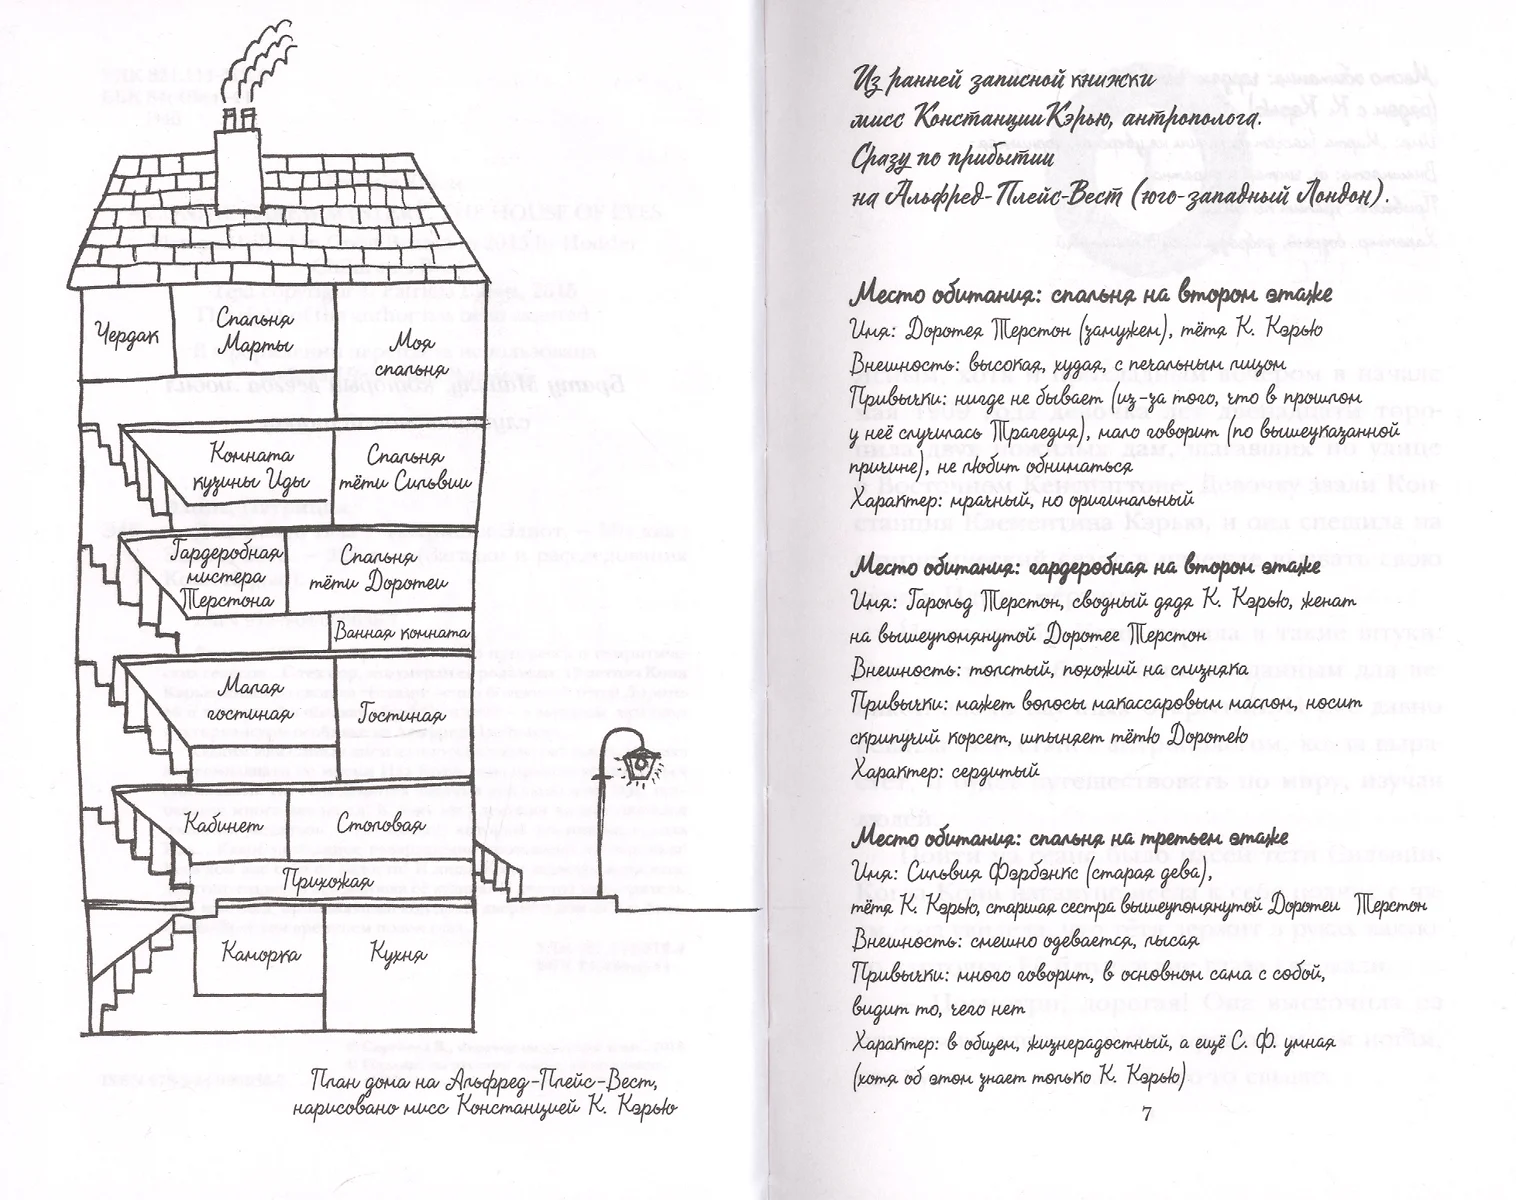 Чердак
Спальня
Марты
Моя
спальня
Комната
кузины Иды
Спальня
тёти Сильвии
Гардеробная
мистера
Терстона
Спальня
тёти Доротеи
Ванная комната
Малая
гостиная
Гостиная
Кабинет
Столовая
Прихожая
Каморка
Кухня
План дома на Альфред-Плейс-Вест,
нарисовано мисс Констанцией К. Кэрью
Из ранней записной книжки
мисс Констанции Кэрью, антрополога.
Сразу по прибытии
на Альфред-Плейс-Вест (юго-западный Лондон).
Место обитания: спальня на втором этаже
Имя: Доротея Терстон (замужем), тётя К. Кэрью
Внешность: высокая, худая, с печальным лицом
Привычки: нигде не бывает (из-за того, что в прошлом
у неё случилась Трагедия), мало говорит (по вышеуказанной
причине), не любит обниматься
Характер: мрачный, но оригинальный
Место обитания: гардеробная на втором этаже
Имя: Гарольд Терстон, сводный дядя К. Кэрью, женат
на вышеупомянутой Доротее Терстон
Внешность: толстый, похожий на слизняка
Привычки: мажет волосы макассаровым маслом, носит
скрипучий корсет, шпыняет тётю Доротею
Характер: сердитый
Место обитания: спальня на третьем этаже
Имя: Сильвия Фэрбэнкс (старая дева),
тётя К. Кэрью, старшая сестра вышеупомянутой Доротеи Терстон
Внешность: смешно одевается, лысая
Привычки: много говорит, в основном сама с собой,
видит то, чего нет
Характер: в общем, жизнерадостный, а ещё С. Ф. умная
(хотя об этом знает только К. Кэрью)
7